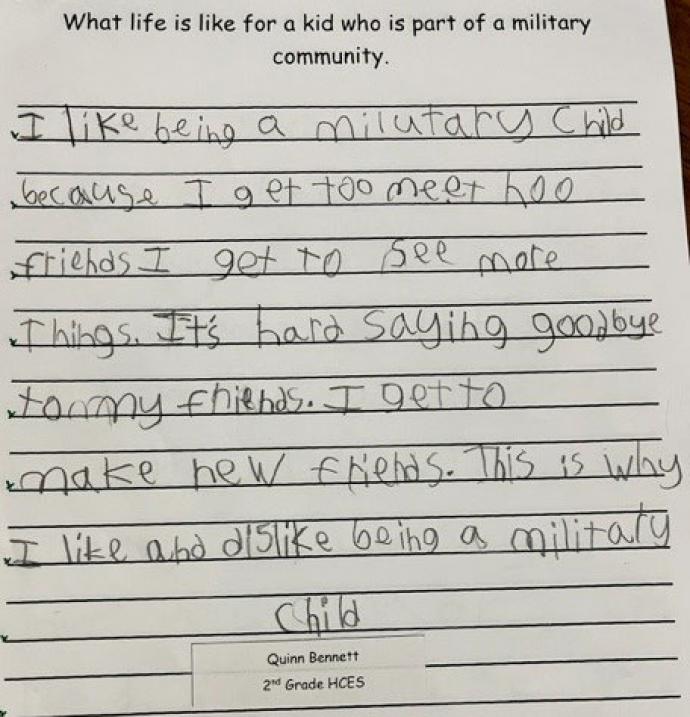 What life is like for a kid who is part of a military
community.
I like being a milutary Child
because I get too meet hoo
friends I get to See more
Things. It's hard saying goodbye
to my friends. I get to
make new friends. This is why
I like and dislike being a military
Child
Quinn Bennett
2nd Grade HCES